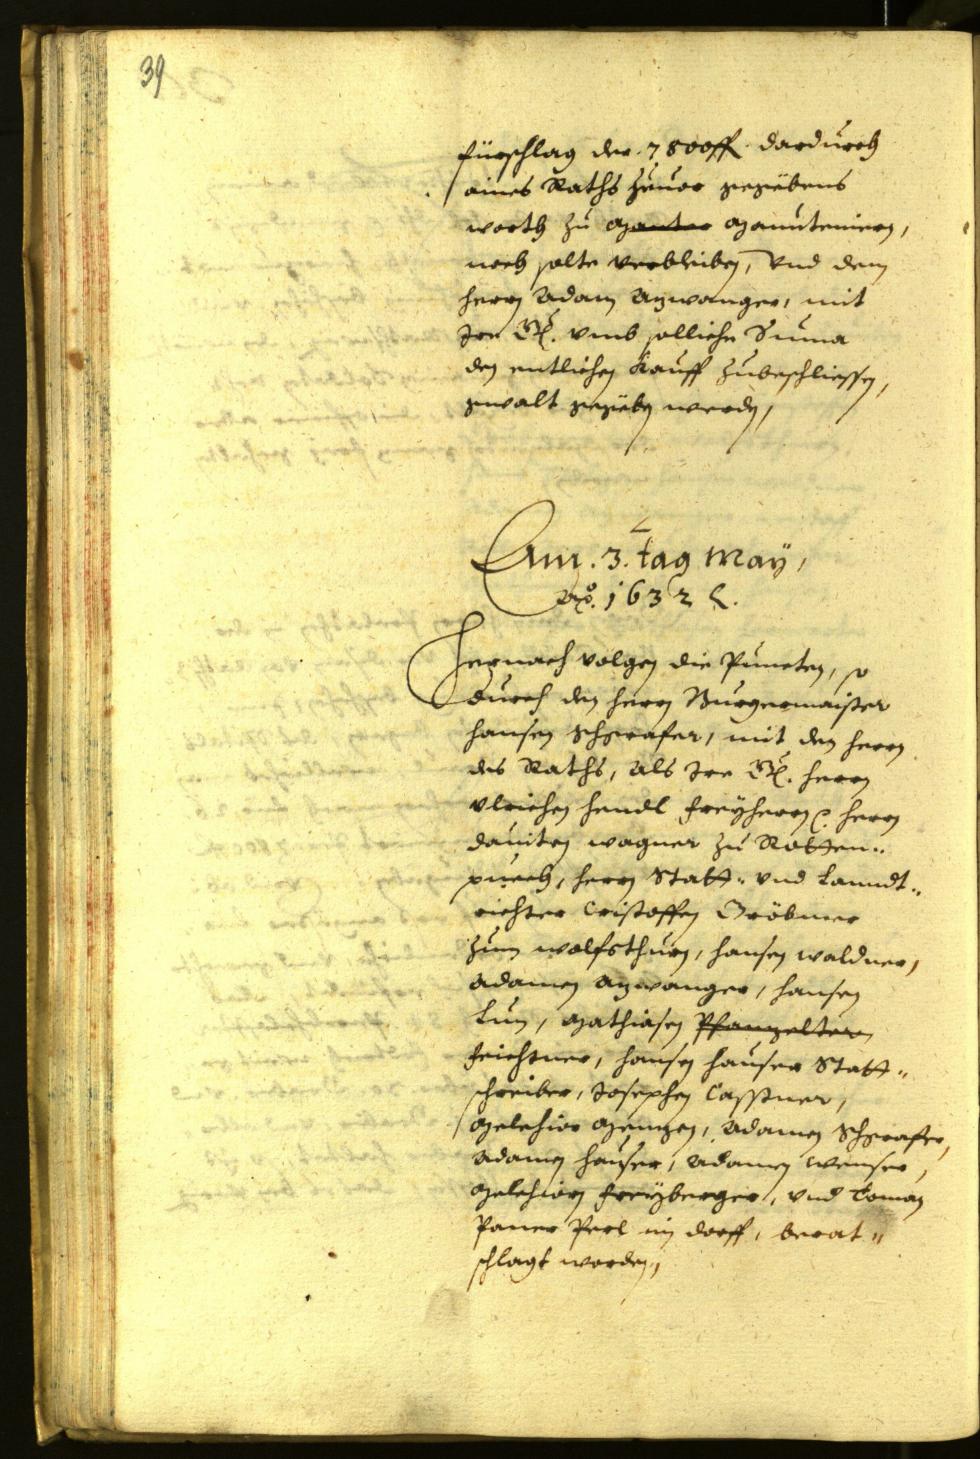 39
fürschlag der 7800 fl. dardurch
aines Raths zuuor gegebens
worth zu manuteniern,
noch solte verbleiben, vnd dem
herrn Adam Anwanger, mit
Ire Gn. vmb solliche Suma
den entlichen Kauff zubeschliessen,
gwalt gegeben werden,
Am .3. tag May,
Ao. 1632 .
Hernach volgen die Puncten, so
durch den herrn Burgermaister
hansen Schgrafer, mit den herrn
des Raths, als Ire Gn. herrn
Vlrichen hendl freyherrn herrn
dauiten wagner zu Rotten„
puech, herrn Statt„ vnd Lanndt„
richter Cristoffen Gröbmer
zum wolfsthurn, hansen waldner,
Adamen Anwanger, hansen
Lun, Mathiasen Pfanzeltern
feichtner, hansen hauser Statt„
schreiber, Josephen Casstner,
Melchior Menzen, Adamen Schgraffer,
Adamen hauser, Adamen wenser,
Melchiorn freyberger, vnd Toman
Paner Perl im dorff, berat„
schlagt worden,